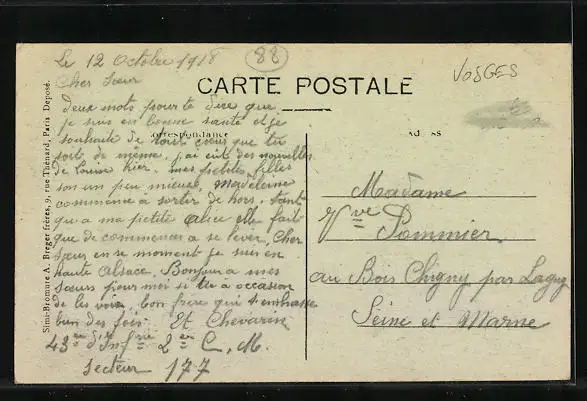 Le 12 Octobre 1918
88
VOSGES
Cher Sœur
CARTE POSTALE
Correspondance
Deux mots pour te dire que
je suis en bonne santé et je
souhaite de tout cœur que tu
soit de même. j'ai eut des nouvelles
de Louise hier. mes petites filles
son un peu mieux, Madeleine
commence a sorter de hors. tant
qu'a ma petite Alice elle fait
que de commencer a se lever, Cher
Sœur en se moment je suis en
haute Alsace, Bonjour a mes
Sœurs pour moi si tu a occasion
de les voir. ton frère qui t'embrasse
bien des fois. Et Chevarin
43me d'Infrie 2me C. M.
Secteur 177
Madame
Vve Pommier
au Bois Chigny par Lagny
Seine et Marne
Simi-Bromure A. Breger frères, 9, rue Thénard, Paris Déposé.